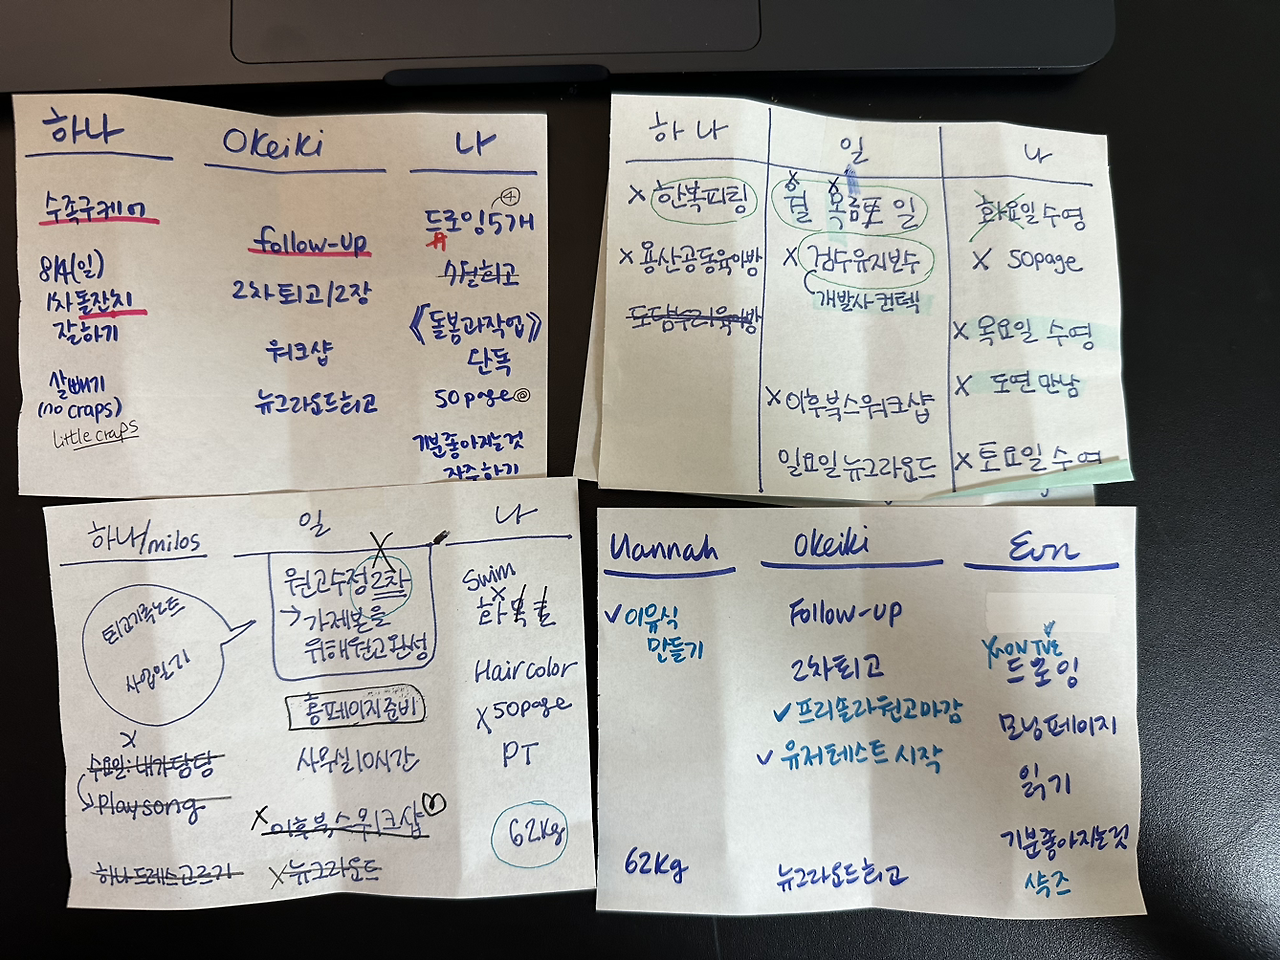 하나
수족구케어
8/4(일)
1차돌잔치
잘하기
살빼기
(no craps)
little craps
Okeiki
follow-up
2차퇴고/2장
워크샵
뉴그라운드회고
나
④
드로잉5개
7월회고
《돌봄과작업》
단독
50page
기분좋아지는것
자주하기
하나
X 한복피팅
X 용산공동육아방
도담누리육아방
일
X X
월 목금토 일
X 검수유지보수
개발사 컨텍
X 이후북스워크샵
일요일뉴그라운드
나
화요일수영
X 50page
X 목요일 수영
X 도연만남
X 토요일 수영
하나/milos
퇴고기록노트
사업일기
X
수요일:내가당탕
playsong
하나드레스고르기
일
X
원고수정2차
→ 가제본을
위해원고완성
홈페이지준비
사무실10시간
X 이후북스워크샵
X 뉴그라운드
나
Swim
X
화목토
Haircolor
X 50page
PT
62kg
Hannah
✓ 이유식
만들기
62kg
Okeiki
Follow-up
2차퇴고
✓ 프리솔라원고마감
✓ 유저테스트 시작
뉴그라운드회고
Eun
드로잉
모닝페이지
읽기
기분좋아지는것